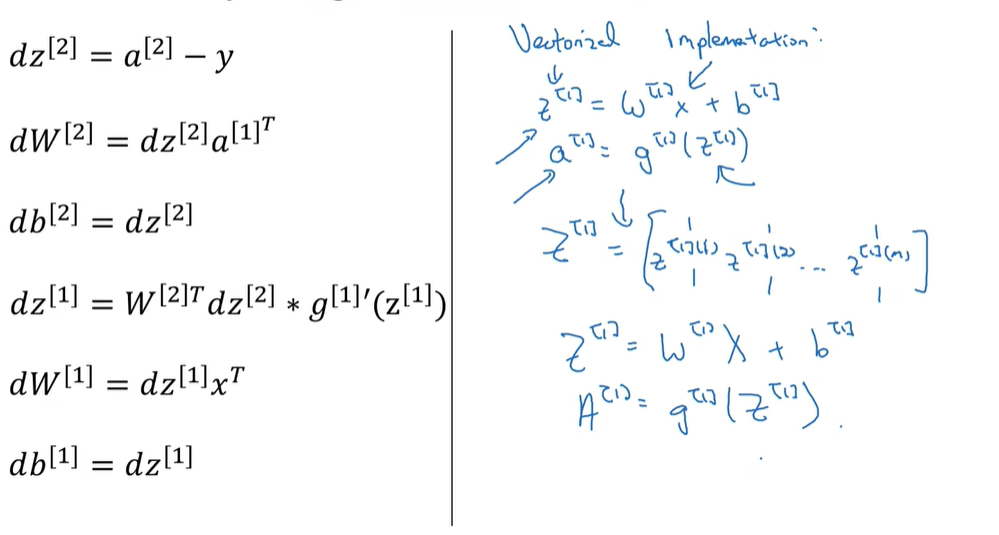 dz^[2] = a^[2] − y
dW^[2] = dz^[2]a^[1]^T
db^[2] = dz^[2]
dz^[1] = W^[2]T dz^[2] * g^[1]′(z^[1])
dW^[1] = dz^[1]x^T
db^[1] = dz^[1]
Vectorized Implematation:
z^[1] = W^[1] x + b^[1]
a^[1] = g^[1](z^[1])
Z^[1] = [z^[1](1) z^[1](2) ... z^[1](m)]
Z^[1] = W^[1] X + b^[1]
A^[1] = g^[1](Z^[1])